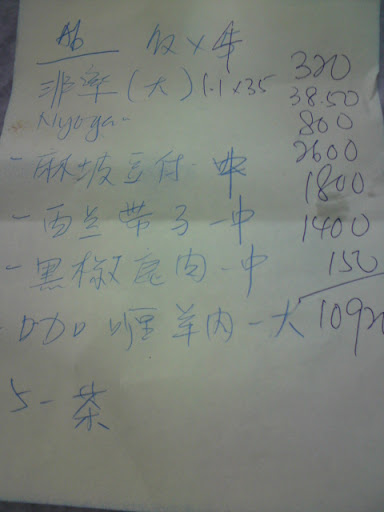 A6 饭 x 4 320
非洲 (大) 1.1 x 35 38.50
Nyoya - 800
- 麻坡豆付 - 中 2600
1800
- 西兰带子 - 中 1400
- 黑椒鹿肉 - 中 150
- 咖喱羊肉 - 大 10920
5 - 茶